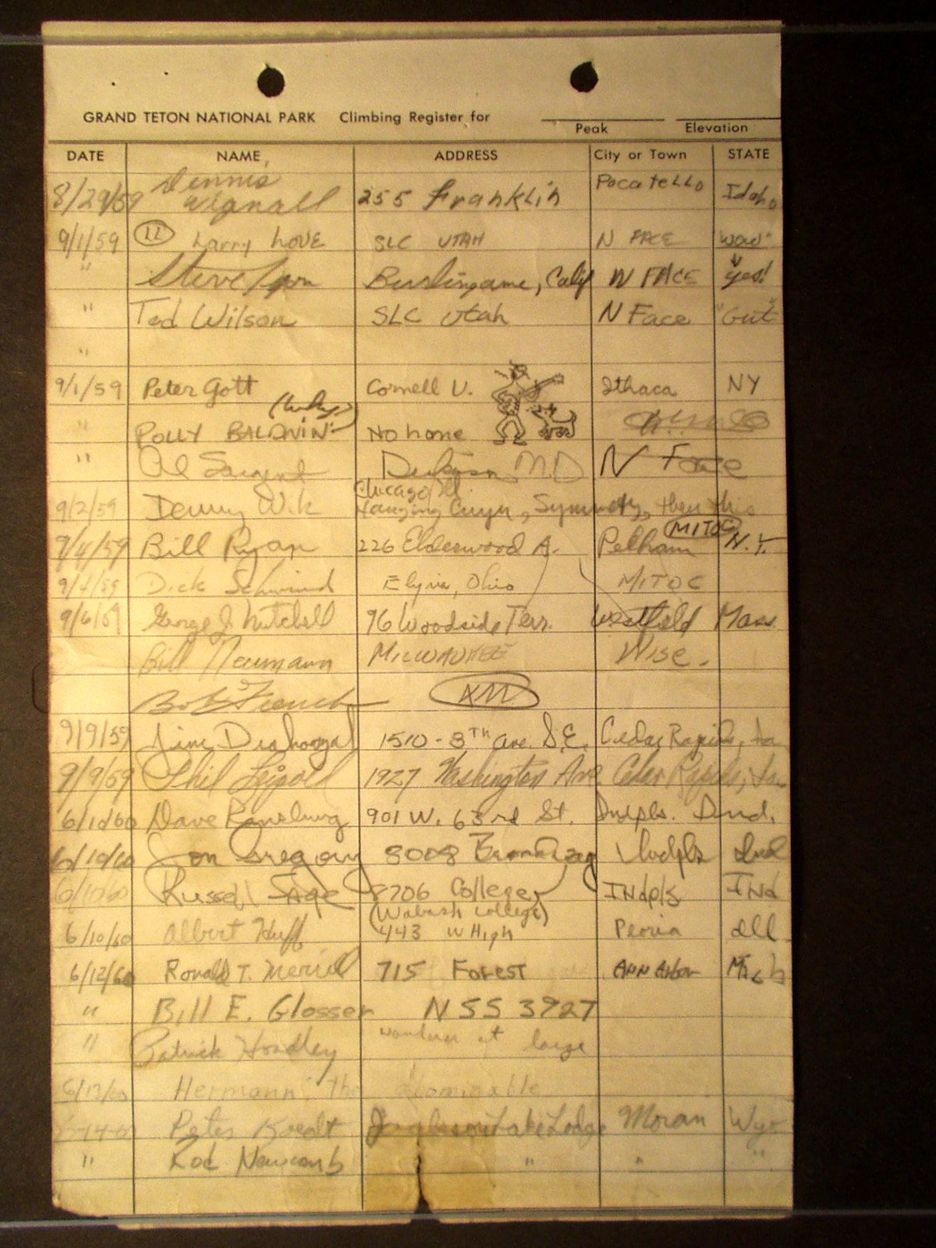 GRAND TETON NATIONAL PARK Climbing Register for
Peak Elevation
DATE NAME ADDRESS City or Town STATE
8/29/59 Dennis Wignall 255 Franklin Pocatello Idaho
9/1/59 (11) Larry LOVE SLC UTAH N FACE "wow"
" Steve Burlingame, Calif N FACE yes!
" Ted Wilson SLC Utah N Face "Gut"
"
9/1/59 Peter Gott Cornell U. Ithaca NY
" POLLY BALDWIN No home
" Al Sargent MD N Face
Chicago Ill
9/2/59 Denny Wik Hanging Canyon, Symmetry, then this
9/4/59 Bill Ryan 226 Elderwood A. Pelham (MITOC) N.Y.
9/4/59 Dick Schwind Elyria, Ohio MITOC
9/6/59 George J. Mitchell 96 Woodside Terr. Westfield Mass.
Bill Neumann MILWAUKEE Wisc.
Bob French
9/9/59 Jim 1510 - 8th Ave. S.E. Cedar Rapids, Ia
9/9/59 Phil 1927 Washington Ave Cedar Rapids, Ia
6/10/60 Dave Ransburg 901 W. 63rd St. Indpls. Ind.
6/10/60 Jon Gregory 8008 Indpls Ind
6/10/60 Russell Sage 8706 College INdpls INd
(Wabash College)
6/10/60 Albert Huff 443 W High Peoria Ill
6/12/60 Ronald T. Merrill 715 FOREST ANN Arbor Mich
" Bill E. Glosser NSS 3927
" Patrick Hoadley wanderer at large
6/13/60 Hermann The abominable
6-14-60 Peter Koedt Jackson Lake Lodge Moran Wyo
" Rod Newcomb " " "